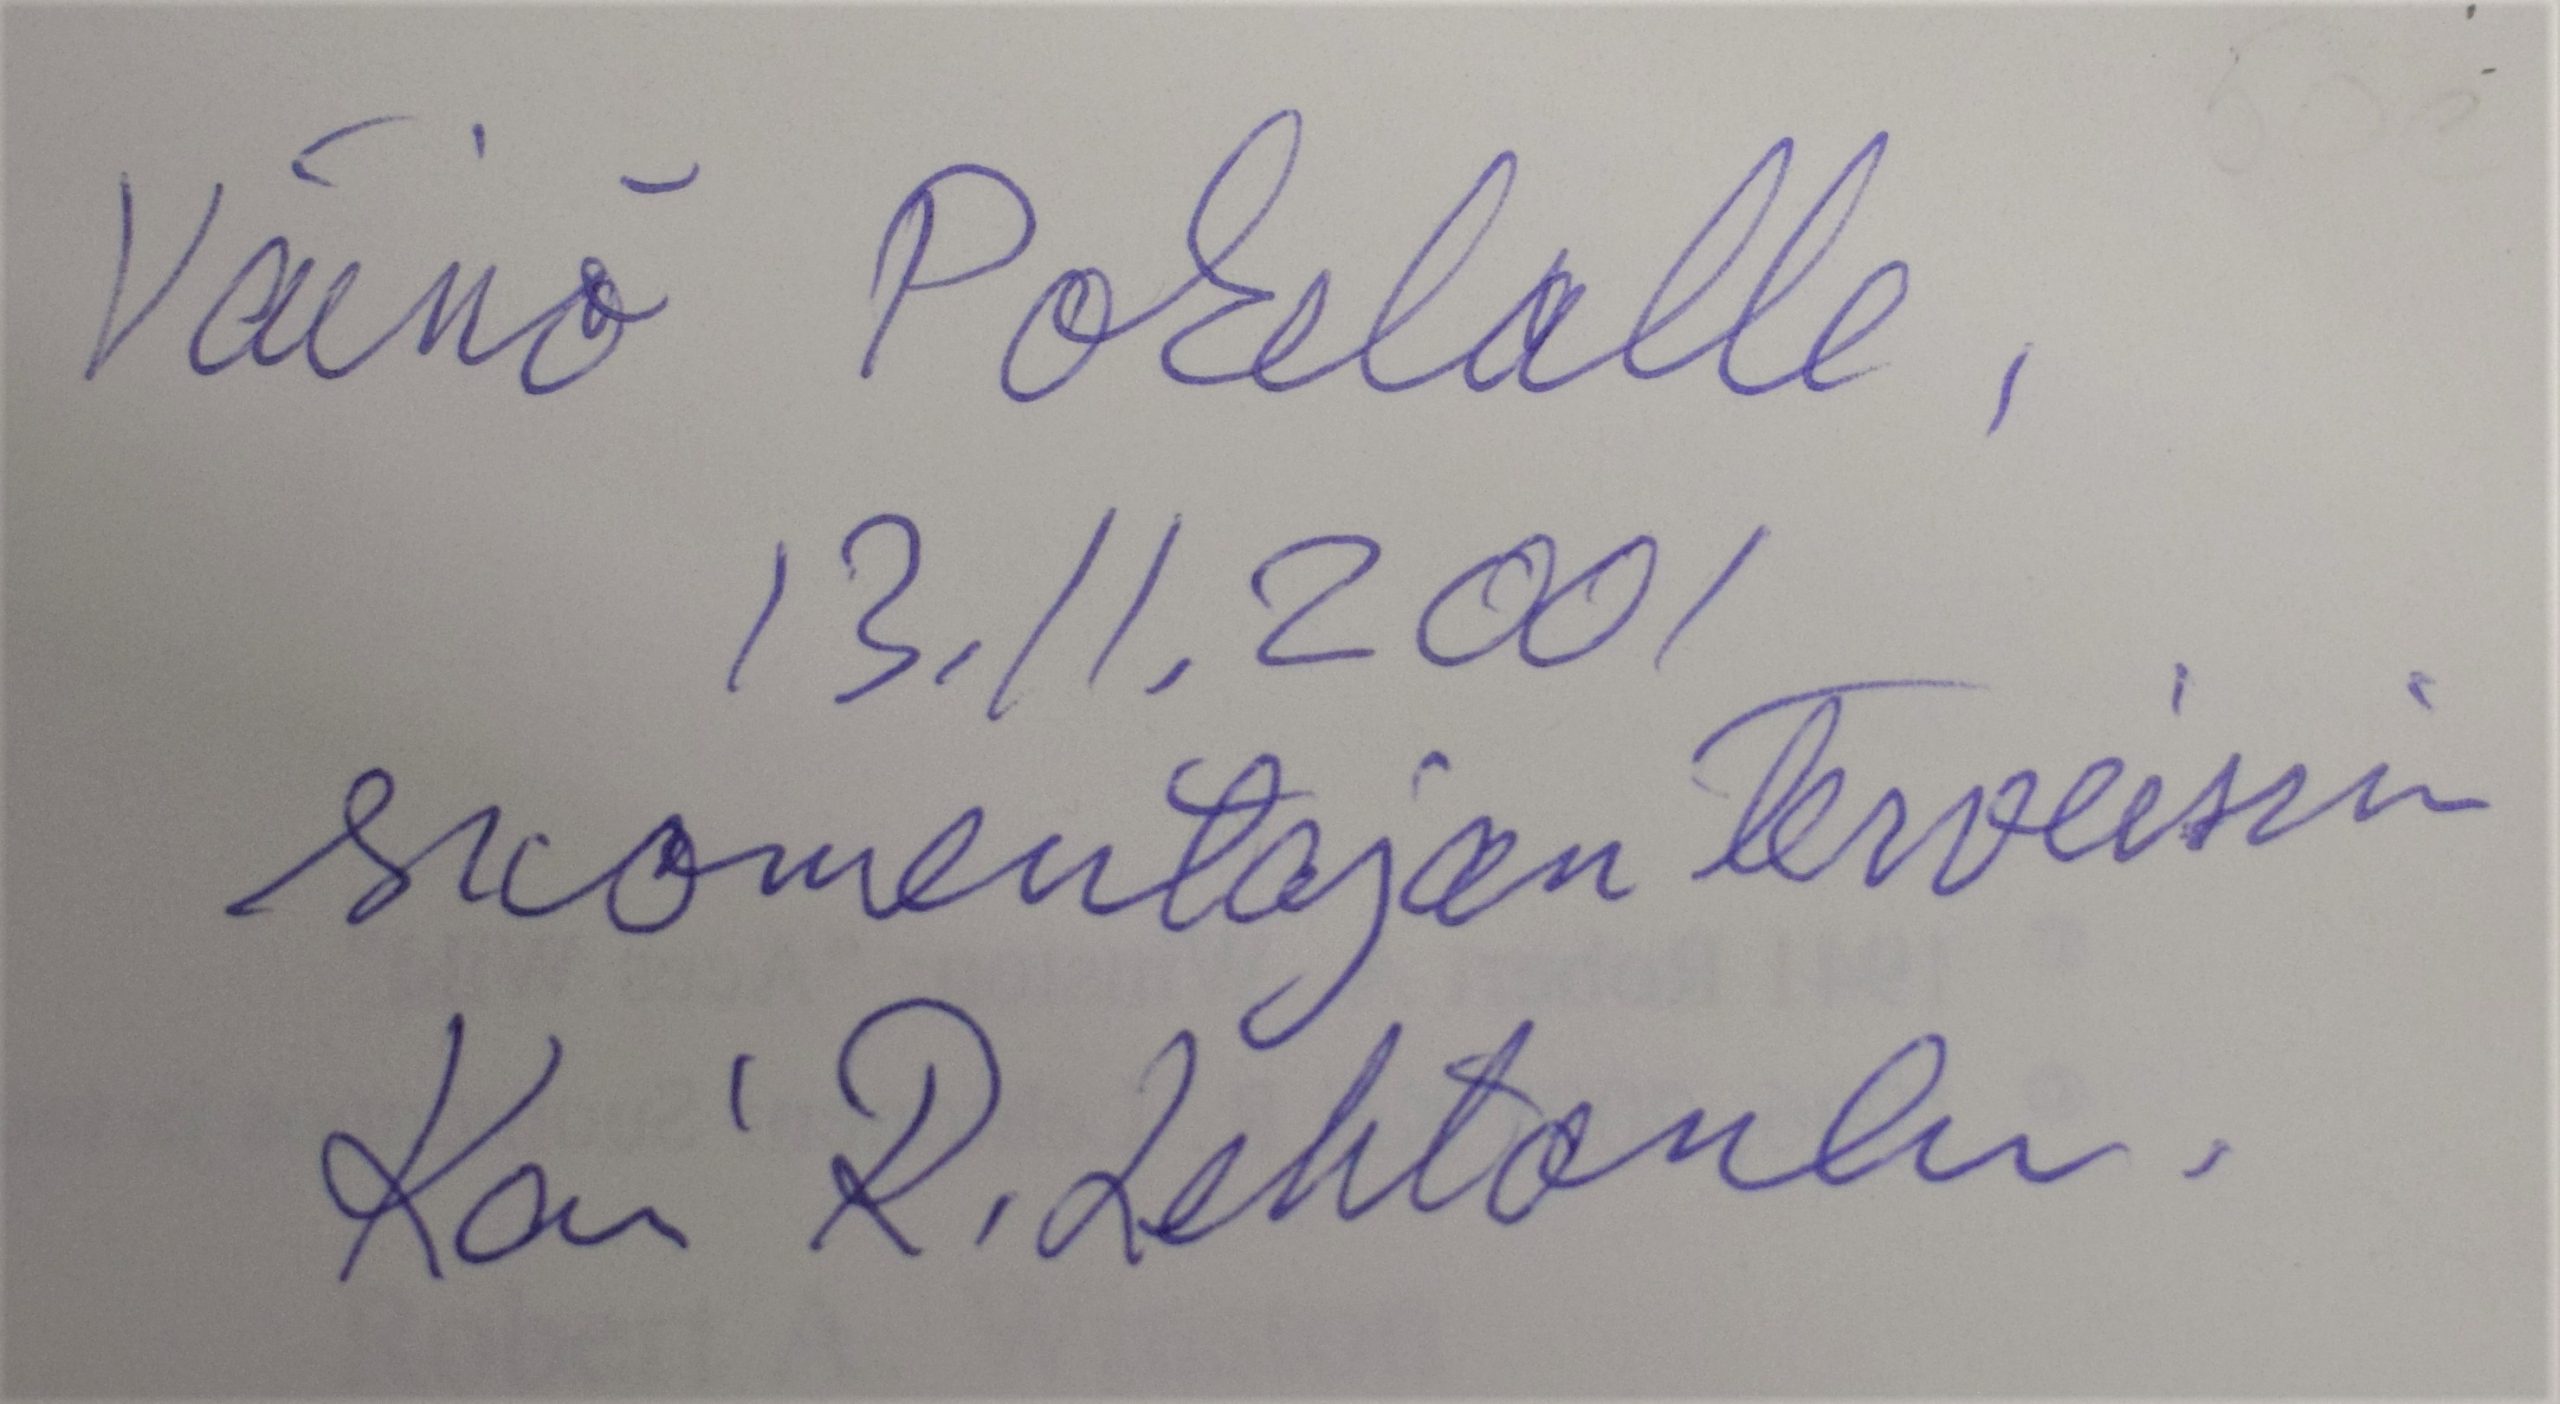 Väinö Pokelalle,
13.11.2001
suomentajan terveisin
Kai R. Lehtonen.